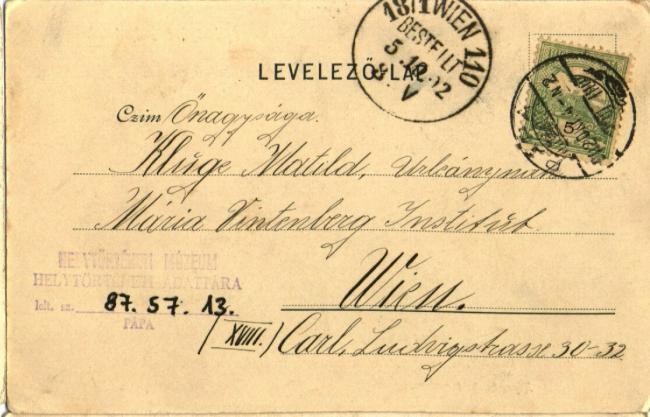 18/1 WIEN 110
BESTELLT
5.10.02
V
LEVELEZŐ-LAP
Czim Őnagysága.
Kluge Matild, Urleánynak
Mária Sintenberg Institut.
Wien.
(XVIII.) Carl, Ludvigstrasse 30-32
HELYTÖRTÉNETI MÚZEUM
HELYTÖRTÉNETI ADATTÁRA
lelt. sz. 87.57.13.
PÁPA